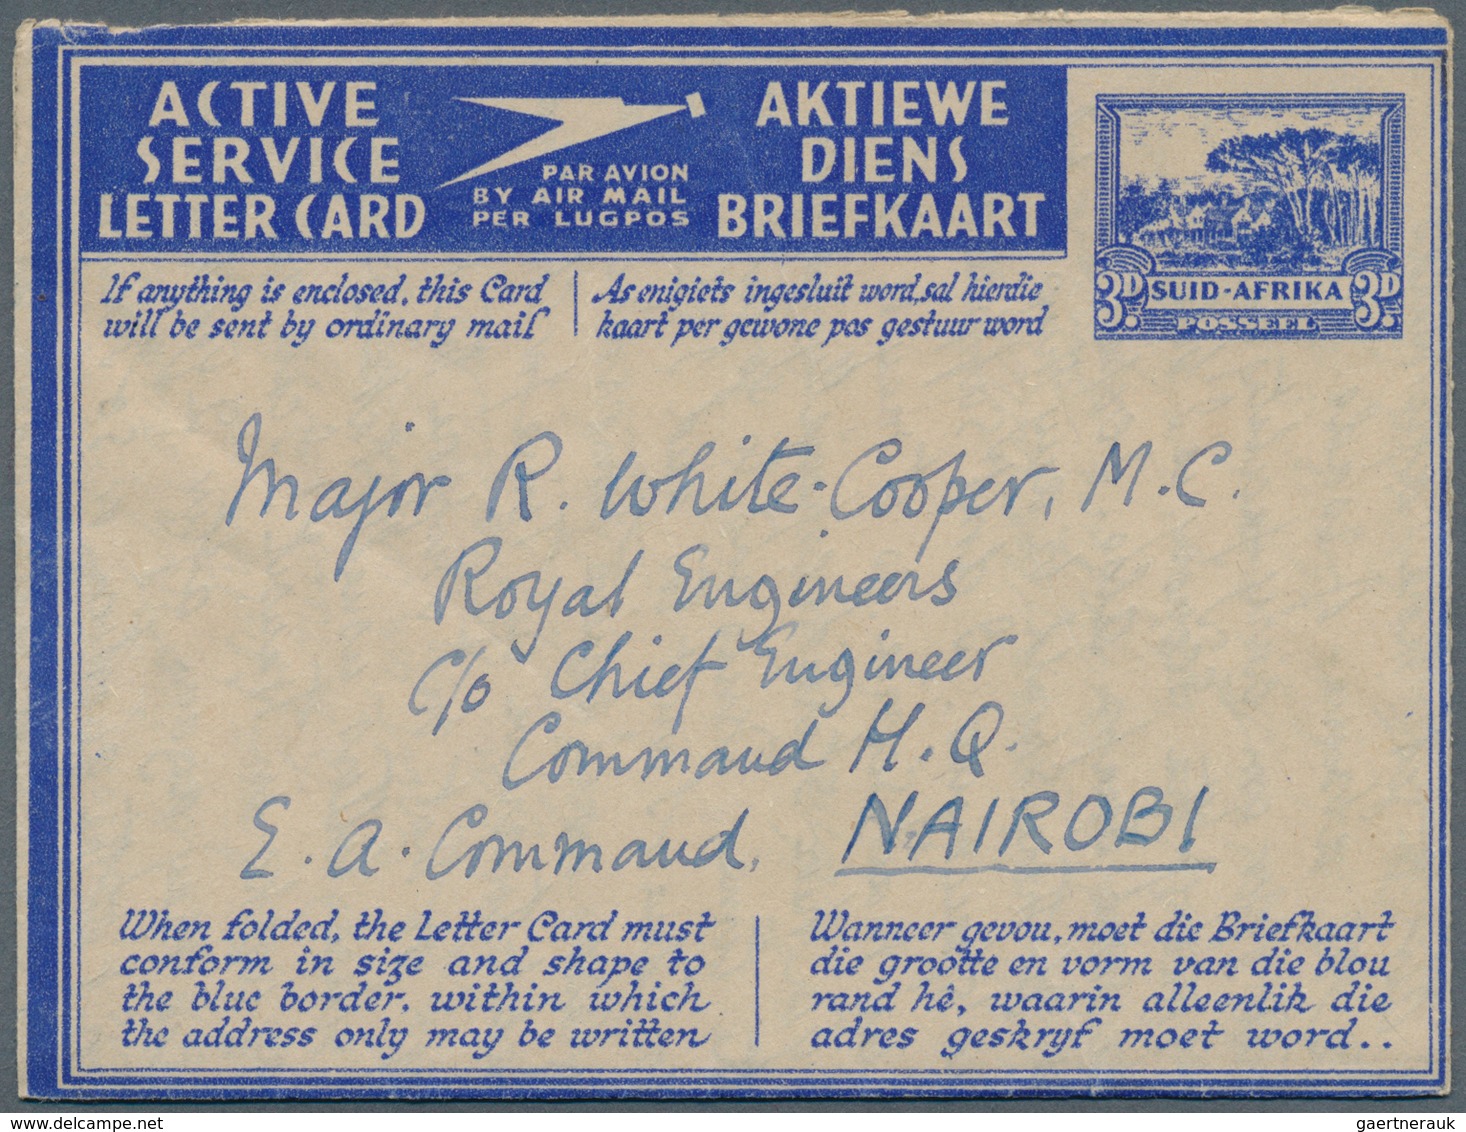 ACTIVE
SERVICE
LETTER CARD
PAR AVION
BY AIR MAIL
PER LUGPOS
AKTIEWE
DIENS
BRIEFKAART
If anything is enclosed, this Card
will be sent by ordinary mail
As enigiets ingesluit word, sal hierdie
kaart per gewone pos gestuur word
3D. SUID-AFRIKA 3D.
POSSEEL
Major R. White-Cooper, M.C.
Royal Engineers
c/o Chief Engineer
Command H.Q.
E.A. Command, NAIROBI
When folded, the Letter Card must
conform in size and shape to
the blue border, within which
the address only may be written
Wanneer gevou, moet die Briefkaart
die grootte en vorm van die blou
rand hê, waarin alleenlik die
adres geskryf moet word..
www.delcampe.net
gaertnerauk